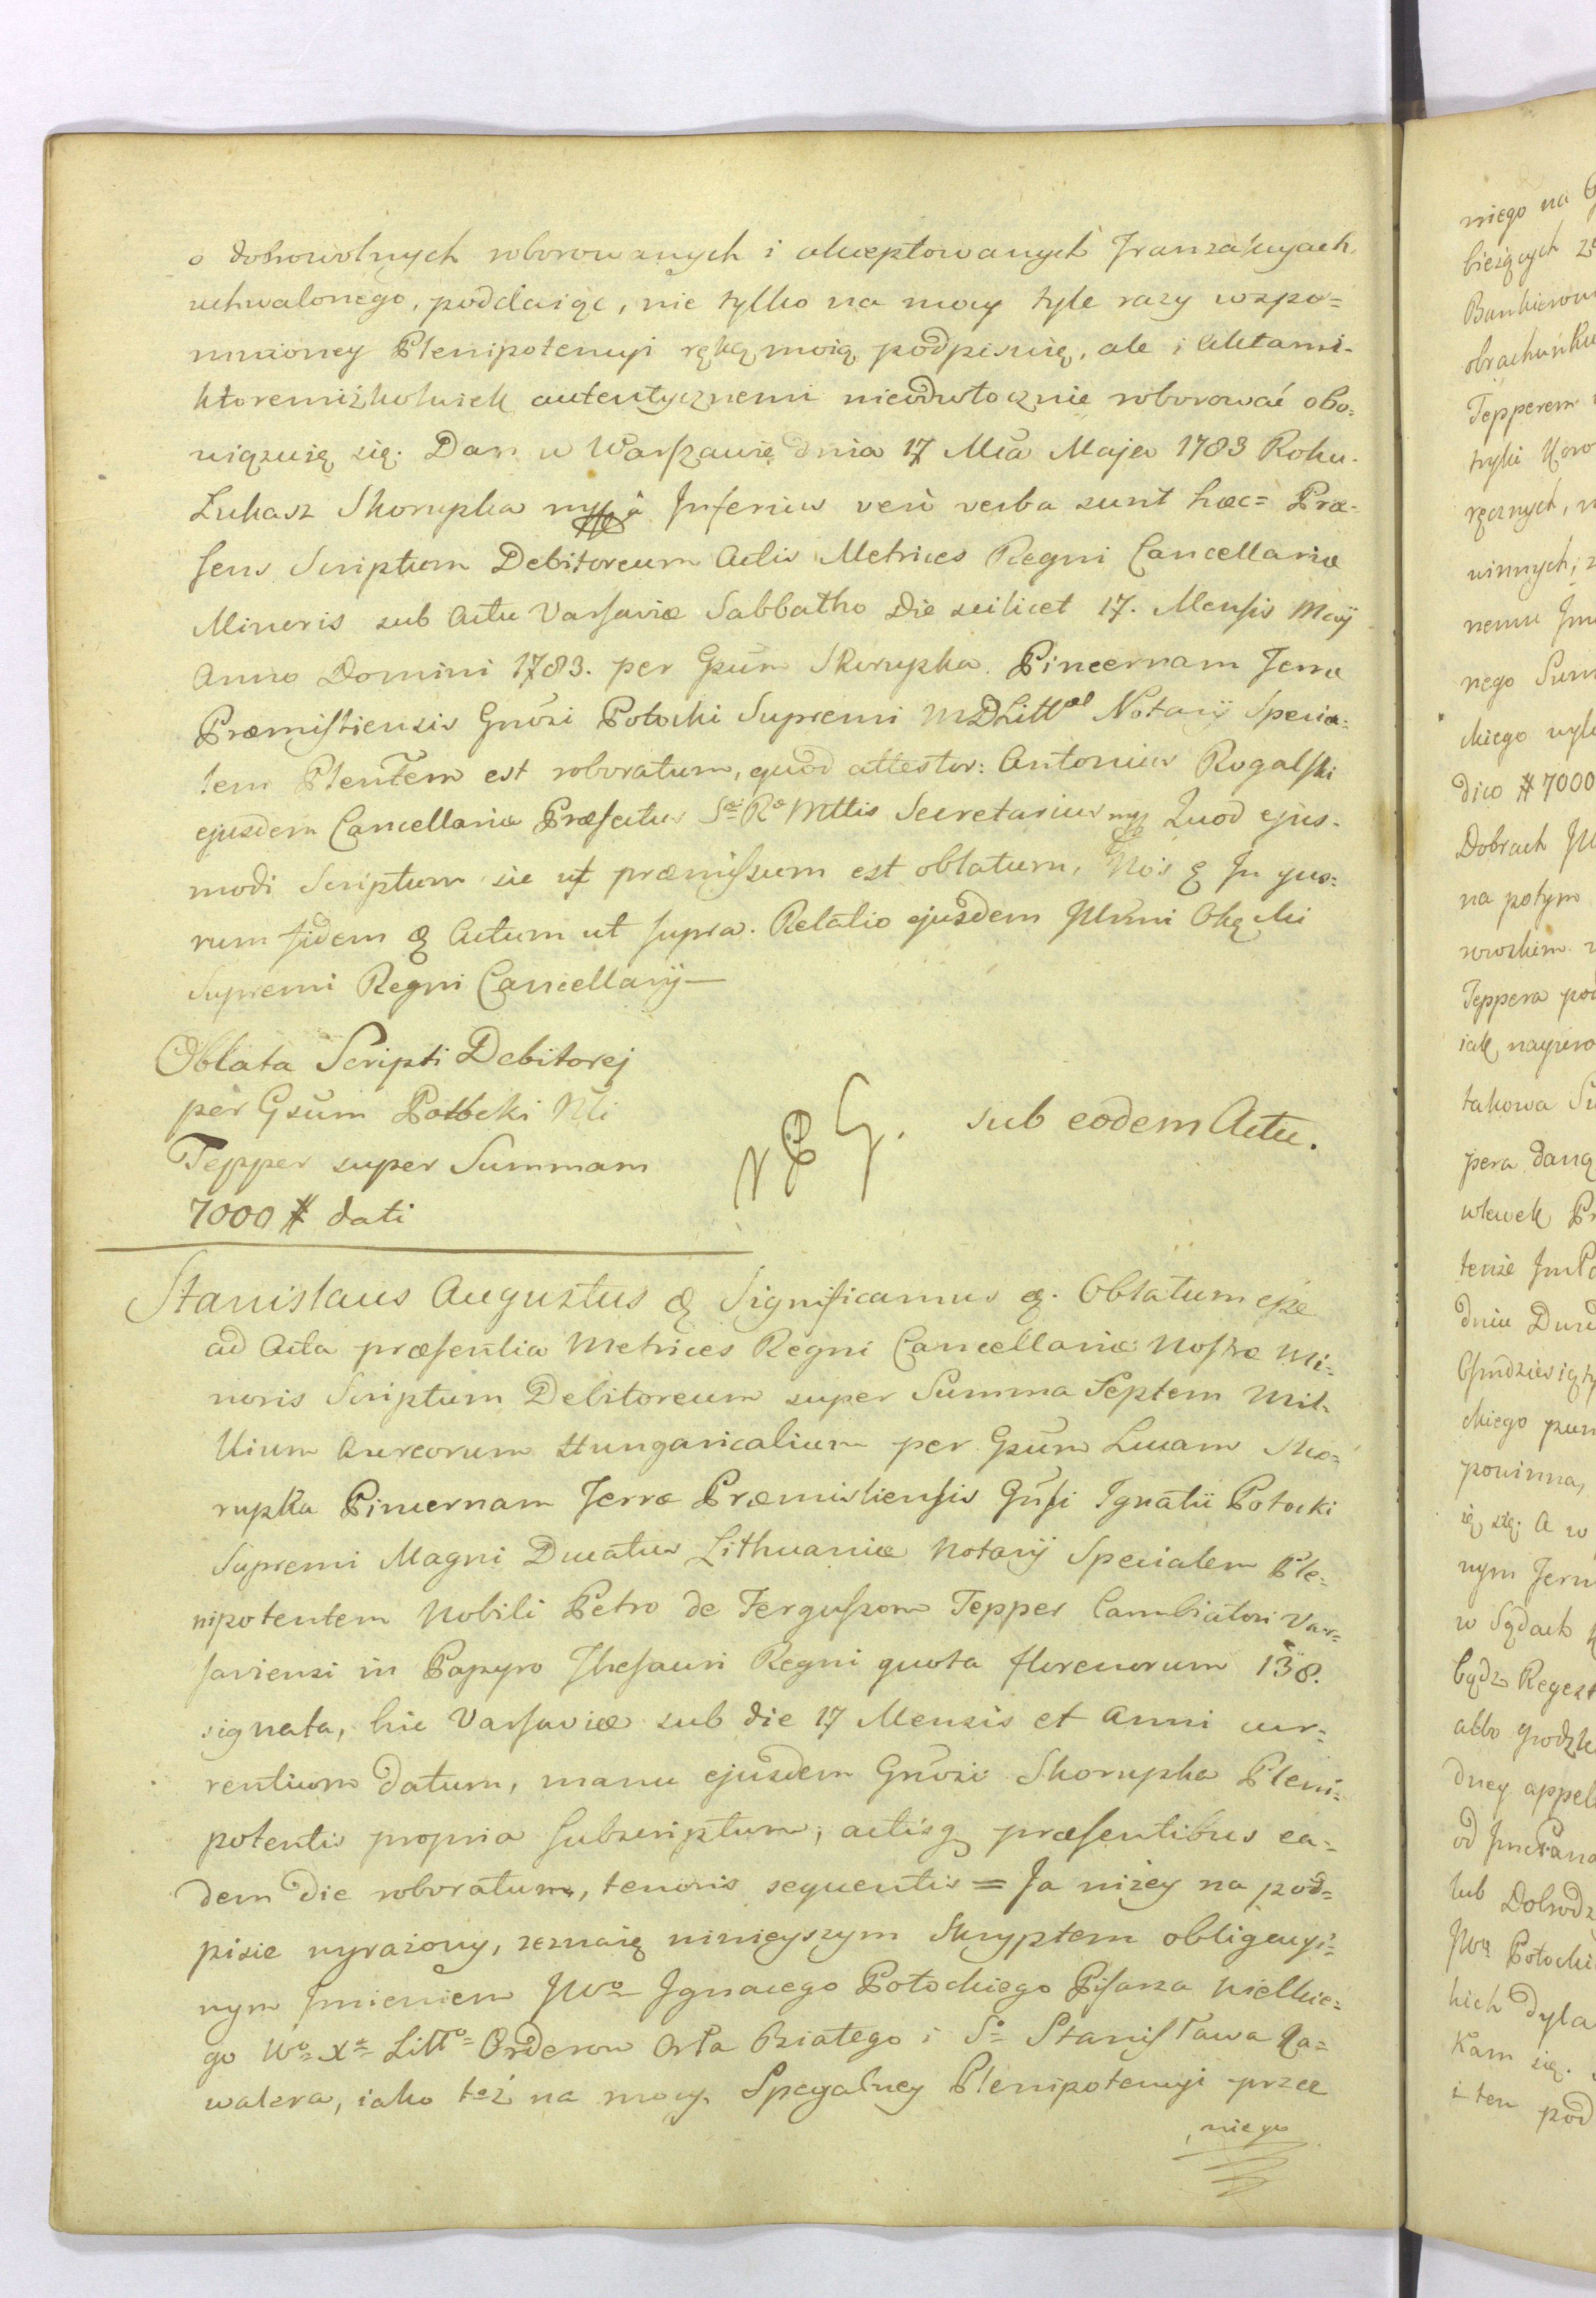 o dobrowolnych roborowanych i akceptowanych Tranzakcyach
uchwalonego, poddaiąc, nie tylko na mocy tyle razy wspo=
mnioney Plenipotencyi ręką moią podpisuię, ale i Aktami
ktoremiżkolwiek autentycznemi nieodwłocznie roborować obo=
wiązuię się. Dan w Warszawie dnia 17 Mca Maja 1783 Roku.
Łukasz Skorupka mp Inferius vero verba sunt hæc= Præ=
sens Scriptum Debitoreum Actis Metrices Regni Cancellariæ
Minoris sub Actu Varsaviæ Sabbatho Die scilicet 17. Mensis Maij
Anno Domini 1783. per Gsum Skorupka Pincernam Terræ
Præmisliensis Gnosi Potocki Supremi MDLitt Notarij Specia=
lem Plentem est roboratum, quod attestor: Antonius Rogalski
ejusdem Cancellariæ Præfectus S R Mttis Secretarius mp Quod ejus=
modi Scriptum sic ut præmissum est oblatum, Nos & In quo=
rum fidem & Actum ut supra. Relatio ejusdem Illmi Okęcki
Supremi Regni Cancellarij—
Oblata Scripti Debitorej
per Gsum Potocki Nli
Tepper super Summam
7000 # dati
sub eodem Actu.
Stanislaus Augustus & Significamus &. Oblatum esse
ad Acta præsentia Metrices Regni Cancellariæ Nostræ Mi=
noris Scriptum Debitoreum super Summa Septem Mil=
lium Aureorum Hungaricalium per Gsum Lucam Sko=
rupka Pincernam Terræ Præmisliensis Gnsi Ignatii Potocki
Supremi Magni Ducatus Lithuaniæ Notarij Specialem Ple=
nipotentem Nobili Petro de Fergusson Tepper Cambiatori Var=
saviensi in Papyro Thesauri Regni quota florenorum 138.
signata, hic Varsaviæ sub die 17 Mensis et Anni cur=
rentium datum, manu ejusdem Gnosi Skorupka Pleni=
potentis propria subscriptum, actisq præsentibus ea=
dem Die roboratum, tenoris sequentis = Ja niżey na pod=
pisie wyrażony, zeznaię ninieyszym Skryptem obligacyi=
nym Imieniem JWo Ignacego Potockiego Pisarza Wielkie=
go Wo Xa Litto Orderow Orła Białego i So Stanisława Ka=
walera, iako też na mocy Specyalney Plenipotencyi przez
niego
niego na
bieżących
Bankierowi
obrachunku
Tepperem
ręcznych,
winnych,
nemu
nego
ckiego
dico # 7000
Dobrach
na potym
Teppera
iak
takowa
pera daną
tenże
dniu
ckiego
powinna,
ię się. A w
nym
w Sądach
bądz
albo
dney
od
lub
Potocki
kich
kam się.
i ten pod